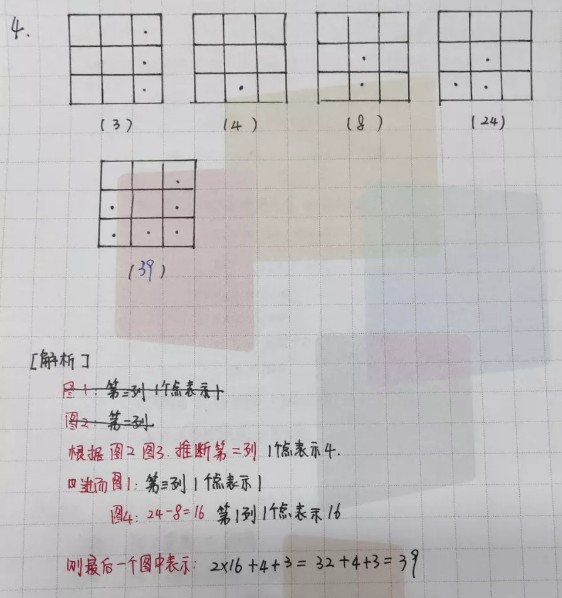 4.
(3) (4) (8) (24)
(39)
[解析]
图1: 第三列 1个点表示1
图2: 第二列
根据图2 图3. 推断第二列 1个点表示4.
图1: 第三列 1个点表示1
图4: 24-8=16 第1列1个点表示16
则最后一个图中表示: 2×16+4+3=32+4+3=39